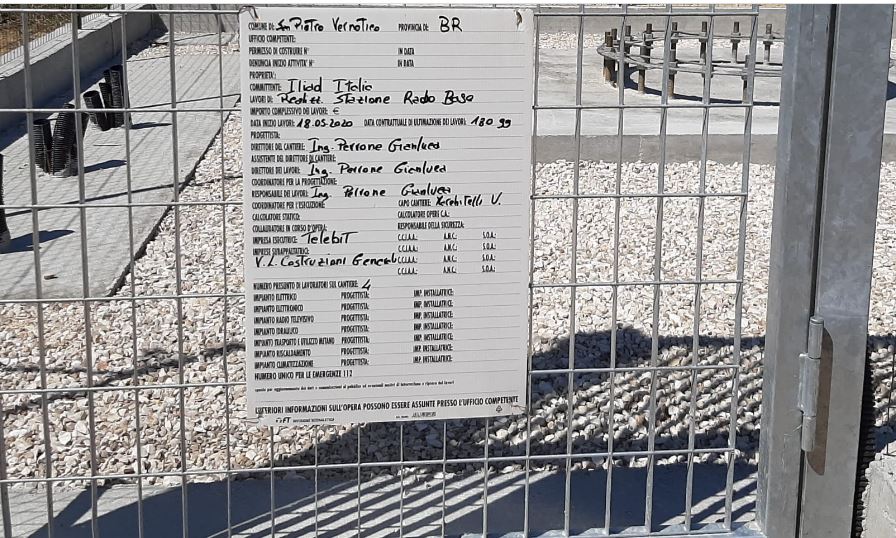 COMUNE DI: San Pietro Vernotico PROVINCIA DI: BR
UFFICIO COMPETENTE:
PERMESSO DI COSTRUIRE N° IN DATA
DENUNCIA INIZIO ATTIVITA' N° IN DATA
PROPRIETA':
COMMITTENTE: Iliad Italia
LAVORI DI: Realizz. Stazione Radio Base
IMPORTO COMPLESSIVO DEI LAVORI: €
DATA INIZIO LAVORI: 18.05.2020 DATA CONTRATTUALE DI ULTIMAZIONE DEI LAVORI: 180 gg
PROGETTISTA:
DIRETTORE DEL CANTIERE: Ing. Perrone Gianluca
ASSISTENTE DEL DIRETTORE DI CANTIERE:
DIRETTORE DEI LAVORI: Ing. Perrone Gianluca
COORDINATORE PER LA PROGETTAZIONE:
RESPONSABILE DEI LAVORI: Ing. Perrone Gianluca
COORDINATORE PER L'ESECUZIONE: CAPO CANTIERE: V.
CALCOLATORE STATICO: CALCOLATORE OPERE C.A.:
COLLAUDATORE IN CORSO D'OPERA: RESPONSABILE DELLA SICUREZZA:
IMPRESA ESECUTRICE: Telebit C.C.I.A.A.: A.N.C.: S.O.A.:
IMPRESE SUBAPPALTATRICI: C.C.I.A.A.: A.N.C.: S.O.A.:
V.L. Costruzioni Generali C.C.I.A.A.: A.N.C.: S.O.A.:
C.C.I.A.A.: A.N.C.: S.O.A.:
NUMERO PRESUNTO DI LAVORATORI SUL CANTIERE: 4
IMPIANTO ELETTRICO PROGETTISTA: IMP. INSTALLATRICE:
IMPIANTO ELETTRONICO PROGETTISTA: IMP. INSTALLATRICE:
IMPIANTO RADIO TELEVISIVO PROGETTISTA: IMP. INSTALLATRICE:
IMPIANTO IDRAULICO PROGETTISTA: IMP. INSTALLATRICE:
IMPIANTO TRASPORTO E UTILIZZO METANO PROGETTISTA: IMP. INSTALLATRICE:
IMPIANTO RISCALDAMENTO PROGETTISTA: IMP. INSTALLATRICE:
IMPIANTO CLIMATIZZAZIONE PROGETTISTA: IMP. INSTALLATRICE:
NUMERO UNICO PER LE EMERGENZE 112
ULTERIORI INFORMAZIONI SULL'OPERA POSSONO ESSERE ASSUNTE PRESSO L'UFFICIO COMPETENTE